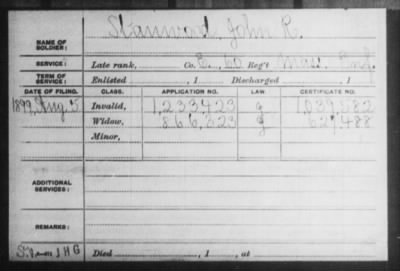 NAME OF SOLDIER: Stanwood, John R.
SERVICE: Late rank, Co. E, 60 Reg't Mass. Inf.
TERM OF SERVICE: Enlisted , 1 Discharged , 1
DATE OF FILING. CLASS. APPLICATION NO. LAW. CERTIFICATE NO.
1899, Aug. 5 Invalid, 1,233,423 g 1,039,582
Widow, 866,323 g 627,488
Minor,
ADDITIONAL SERVICES:
REMARKS:
J H G Died , 1 , at